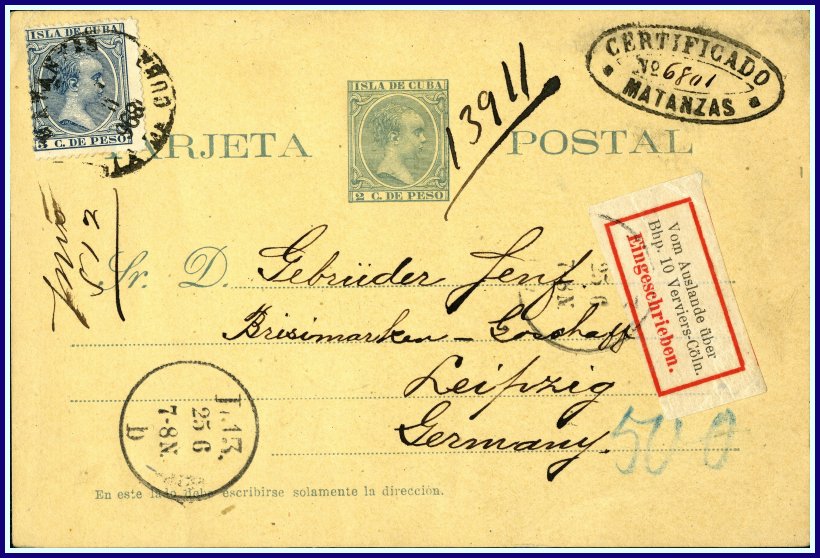 ISLA DE CUBA
5 C. DE PESO
CUBA
896
ISLA DE CUBA
2 C. DE PESO
13911
CERTIFICADO
Nº 6801
MATANZAS
TARJETA POSTAL
Vom Auslande über
Bhp. 10 Verviers-Cöln.
Eingeschrieben.
Sr. D. Gebrüder Senf
Briefmarken - Geschäft
Leipzig
Germany.
25 6
7-8N
L.13.
25 6
7-8N.
b
En este lado debe escribirse solamente la dirección.